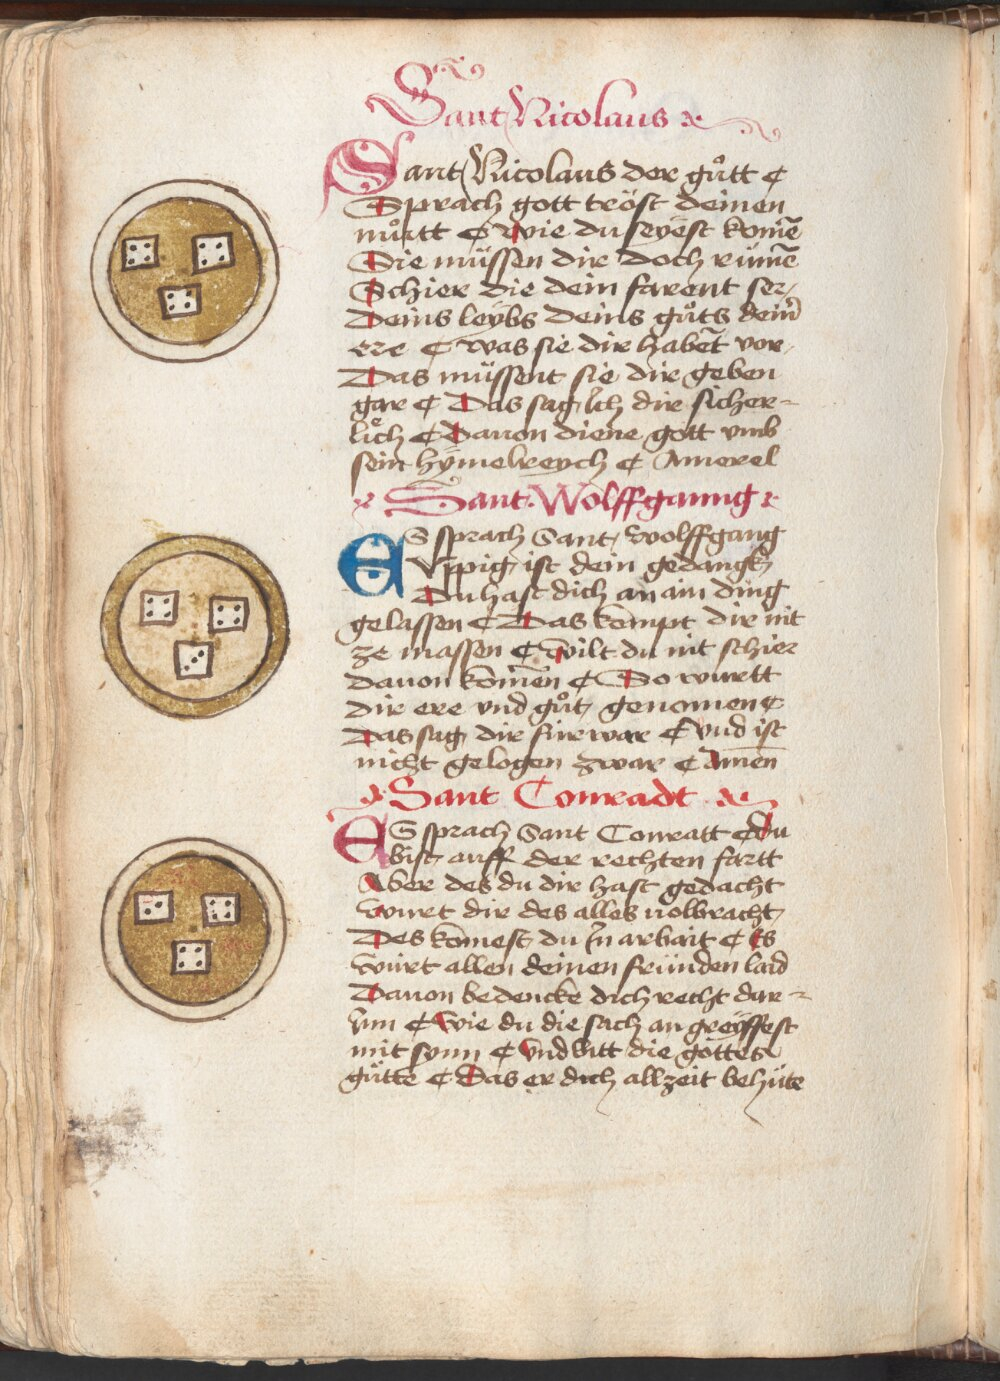 Sant Nicolaus
Sant Nicolaus der gůtt ¢
Sprach gott tröst deinen
můtt ¢ wie du seyest komē
Die müssen dir doch rümē
Schier die dein farent ser
Deins leybs deins gůts deinr̄
ere ¢ was sie dir habēt vor
Das müssent sie dir geben
gar ¢ Das sag ich dir sicher-
lich ¢ Dauon diene gott vmb
sein hymelreych ¢ Amerel
Sant Wolffganng
ES sprach Sant wolffgang
Vppig ist dein gedangk
Du hast dich an ain ding
gelassen ¢ Das kompt dir nit
ze massen ¢ wilt du nit schier
dauon komēn ¢ So wurtt
dir ere vnd gůt genomen ¢
Das sag dir fürwar ¢ Vnd ist
nicht gelogen zwar ¢ Amēn
Sant Conradt
ES sprach Sant Conratt ¢ du
bist auff der rechten fartt
Aber des du dir hast gedacht
wurt dir des alles volbracht
Des komest du In arbait ¢ Es
würt allen deinen fründen laid
Dauon bedencke dich recht dar-
vm ¢ wie du die sach an greyffest
mit synn ¢ Vnd bitt die gottes
gütte ¢ Das er dich allzeit behüte